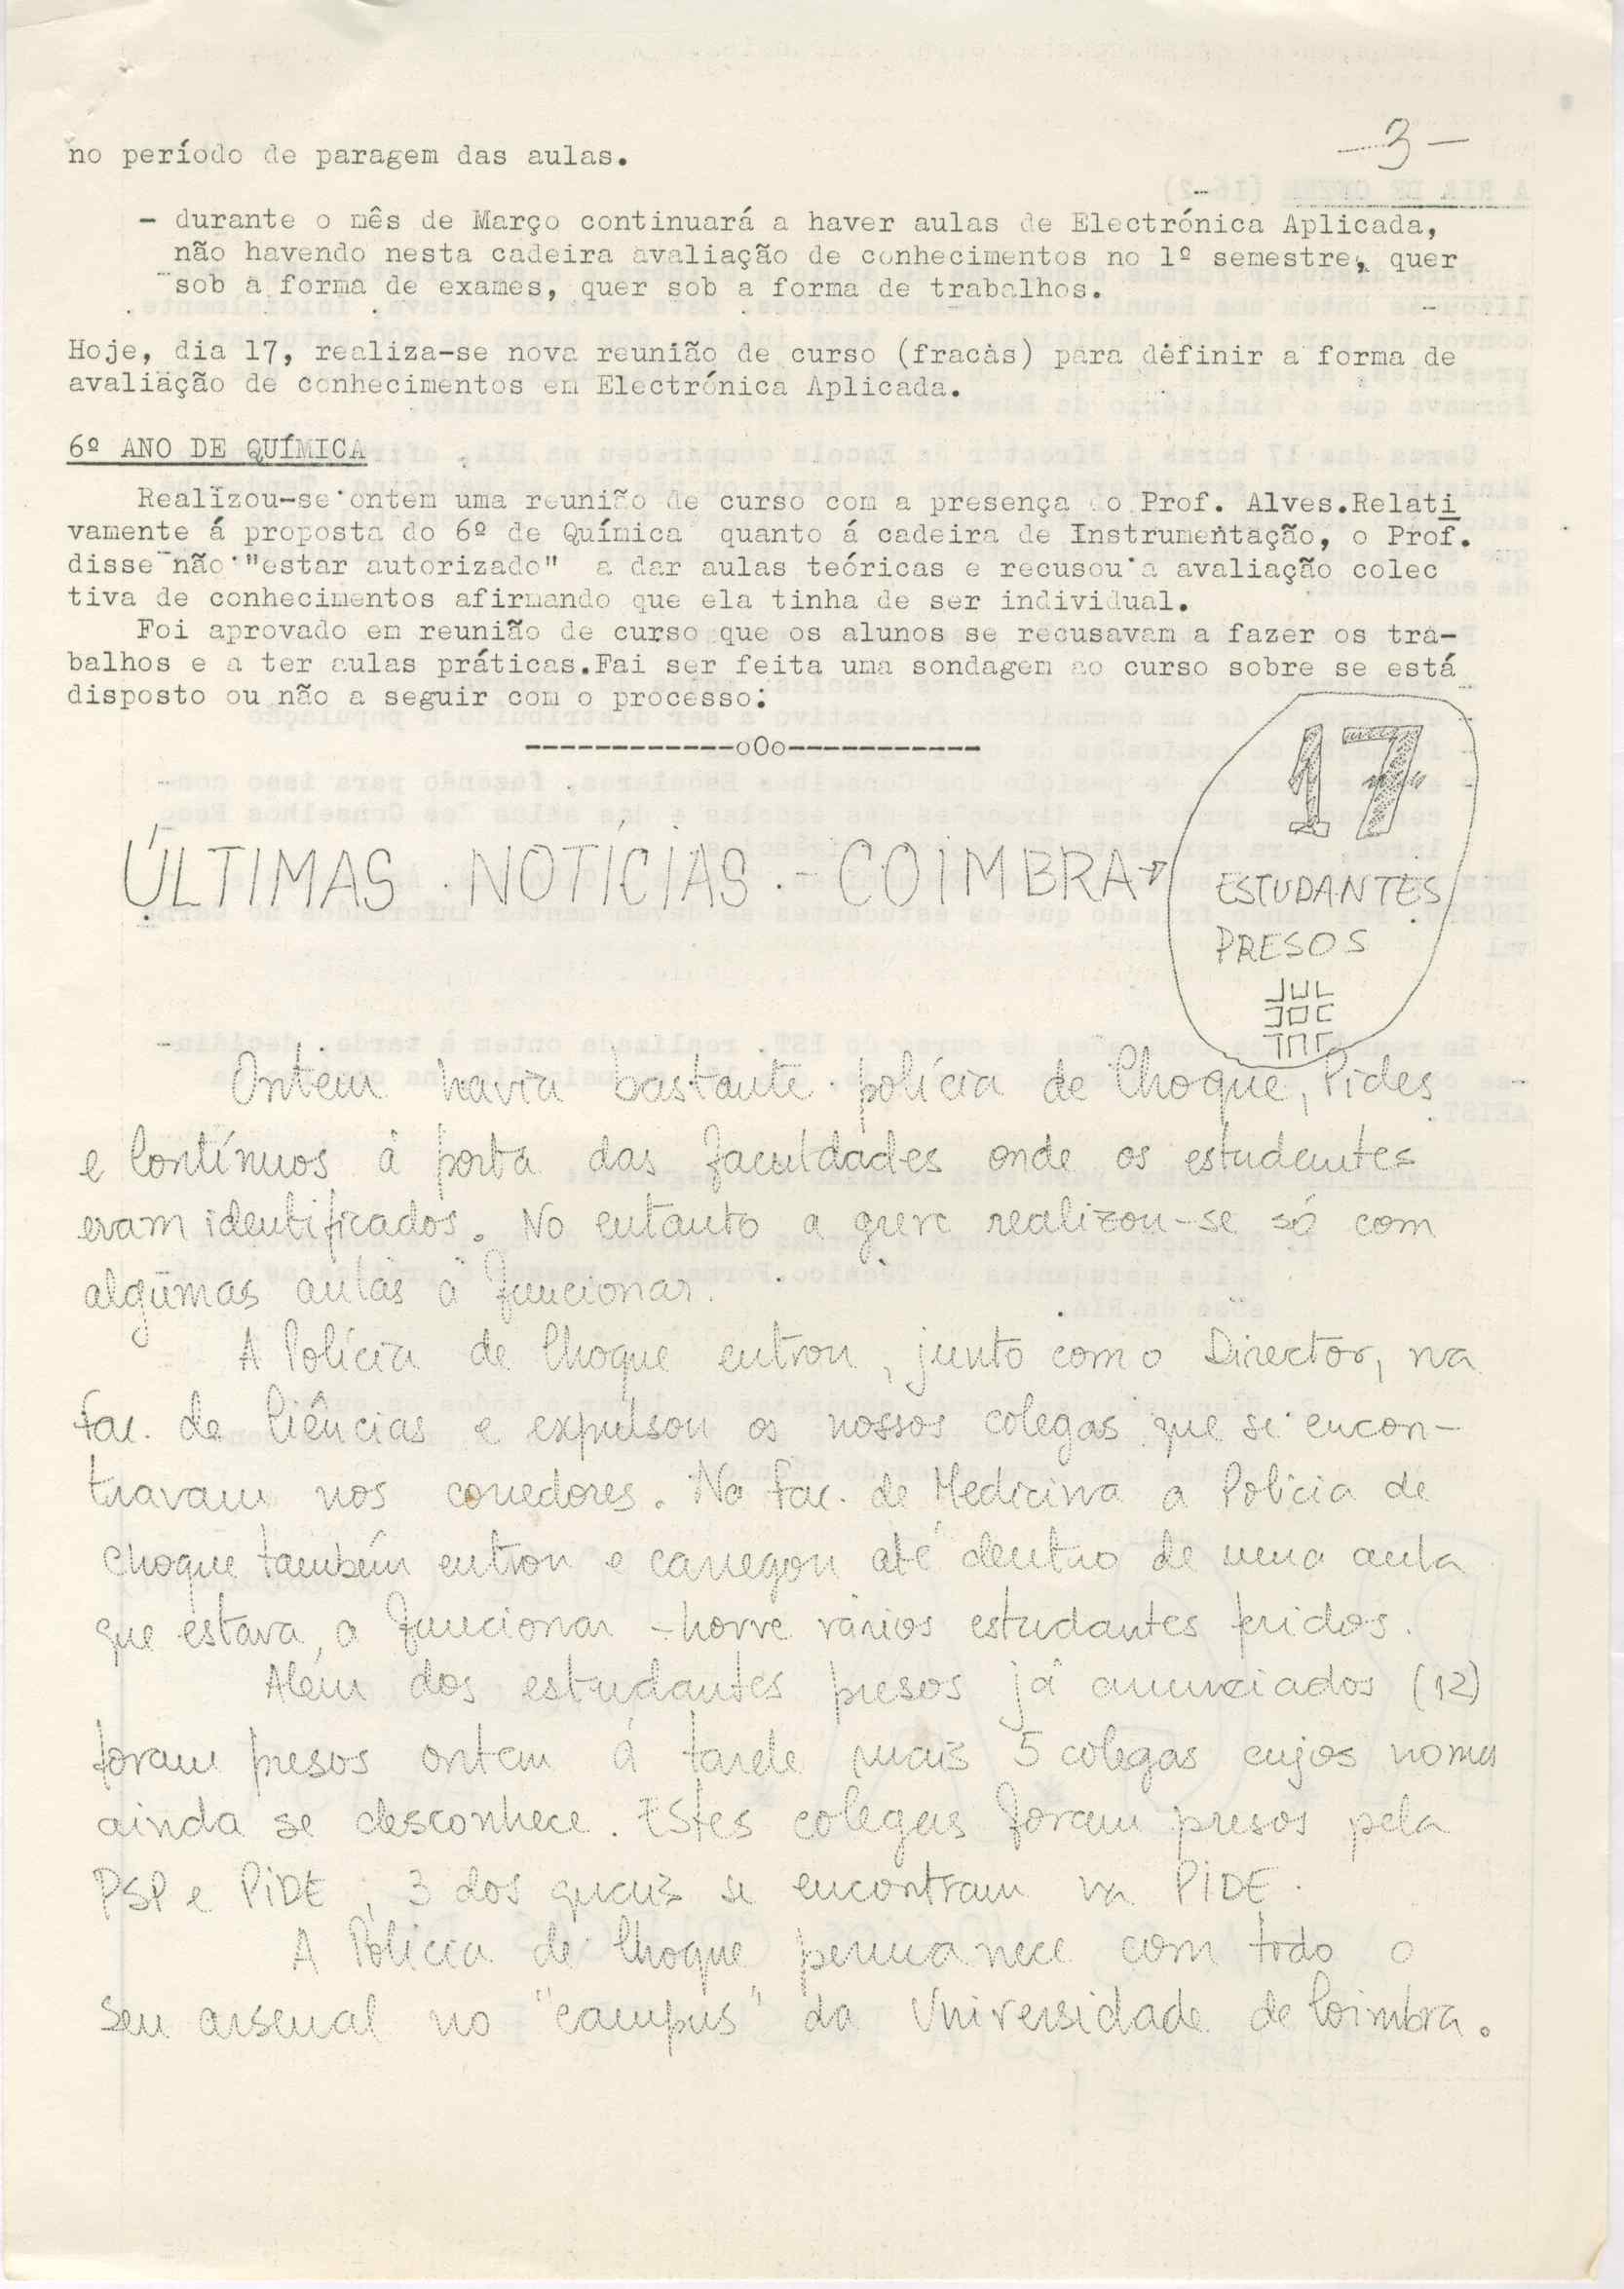 -3-
no período de paragem das aulas.
- durante o mês de Março continuará a haver aulas de Electrónica Aplicada,
não havendo nesta cadeira avaliação de conhecimentos no 1º semestre, quer
sob a forma de exames, quer sob a forma de trabalhos.
Hoje, dia 17, realiza-se nova reunião de curso (fracas) para definir a forma de
avaliação de conhecimentos em Electrónica Aplicada.
6º ANO DE QUÍMICA
Realizou-se ontem uma reunião de curso com a presença do Prof. Alves.Relati
vamente á proposta do 6º de Química quanto á cadeira de Instrumentação, o Prof.
disse não "estar autorizado" a dar aulas teóricas e recusou a avaliação colec
tiva de conhecimentos afirmando que ela tinha de ser individual.
Foi aprovado em reunião de curso que os alunos se recusavam a fazer os tra-
balhos e a ter aulas práticas.Fai ser feita uma sondagem ao curso sobre se está
disposto ou não a seguir com o processo:
------------oOo-----------
ÚLTIMAS NOTÍCIAS - COIMBRA
17
ESTUDANTES
PRESOS
Ontem havia bastante polícia de Choque, Pides
e Contínuos á porta das faculdades onde os estudantes
eram identificados. No entanto a greve realizou-se só com
algumas aulas a funcionar.
A Polícia de Choque entrou, junto com o Director, na
Fac. de Ciências e expulsou os nossos colegas que se encon-
travam nos corredores. Na Fac. de Medicina a Polícia de
choque também entrou e carregou até dentro de uma aula
que estava a funcionar - houve vários estudantes feridos.
Além dos estudantes presos já anunciados (12)
foram presos ontem á tarde mais 5 colegas cujos nomes
ainda se desconhece. Estes colegas foram presos pela
PSP e PIDE, 3 dos quais se encontram na PIDE.
A Polícia de Choque permanece com todo o
seu arsenal no "campus" da Universidade de Coimbra.